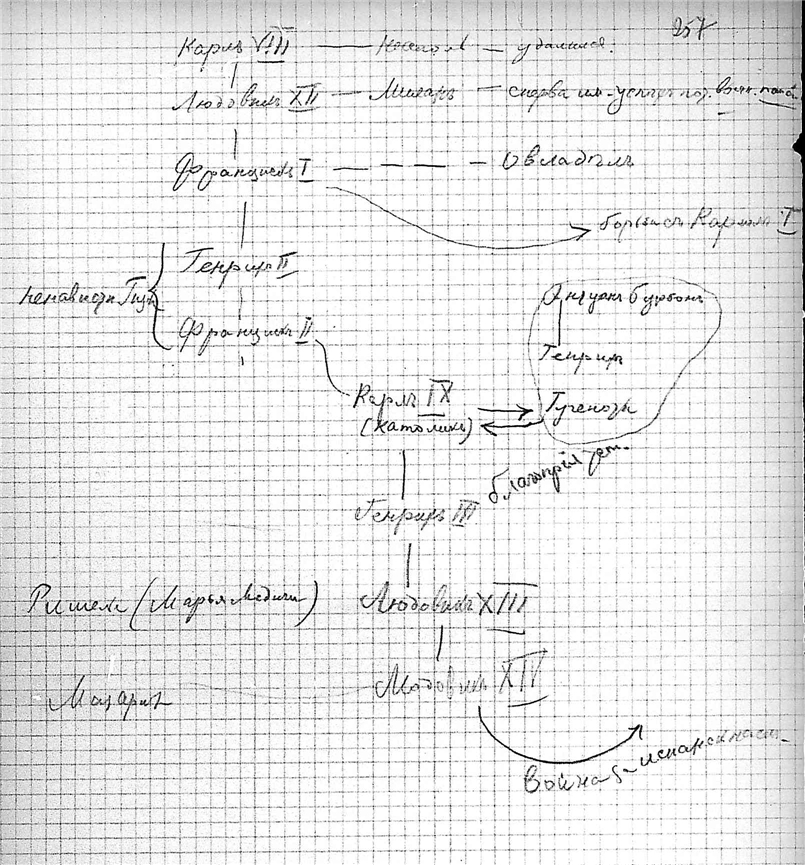 257
Карлъ VIII — удалился.
Людовикъ XII — Миланъ — сперва им. успѣхъ пот.
Францискъ I — — — — Овладѣлъ
борьба съ Карломъ V
Генрихъ II
ненависть Гиз.
Францискъ II
Антуанъ Бурбонъ
Генрихъ
Гугеноты
Карлъ IX
(католики)
Генрихъ III
Ришелье (Марья Медичи) Людовикъ XIII
Мазарини Людовикъ XIV
Война за испанск. наслѣд.